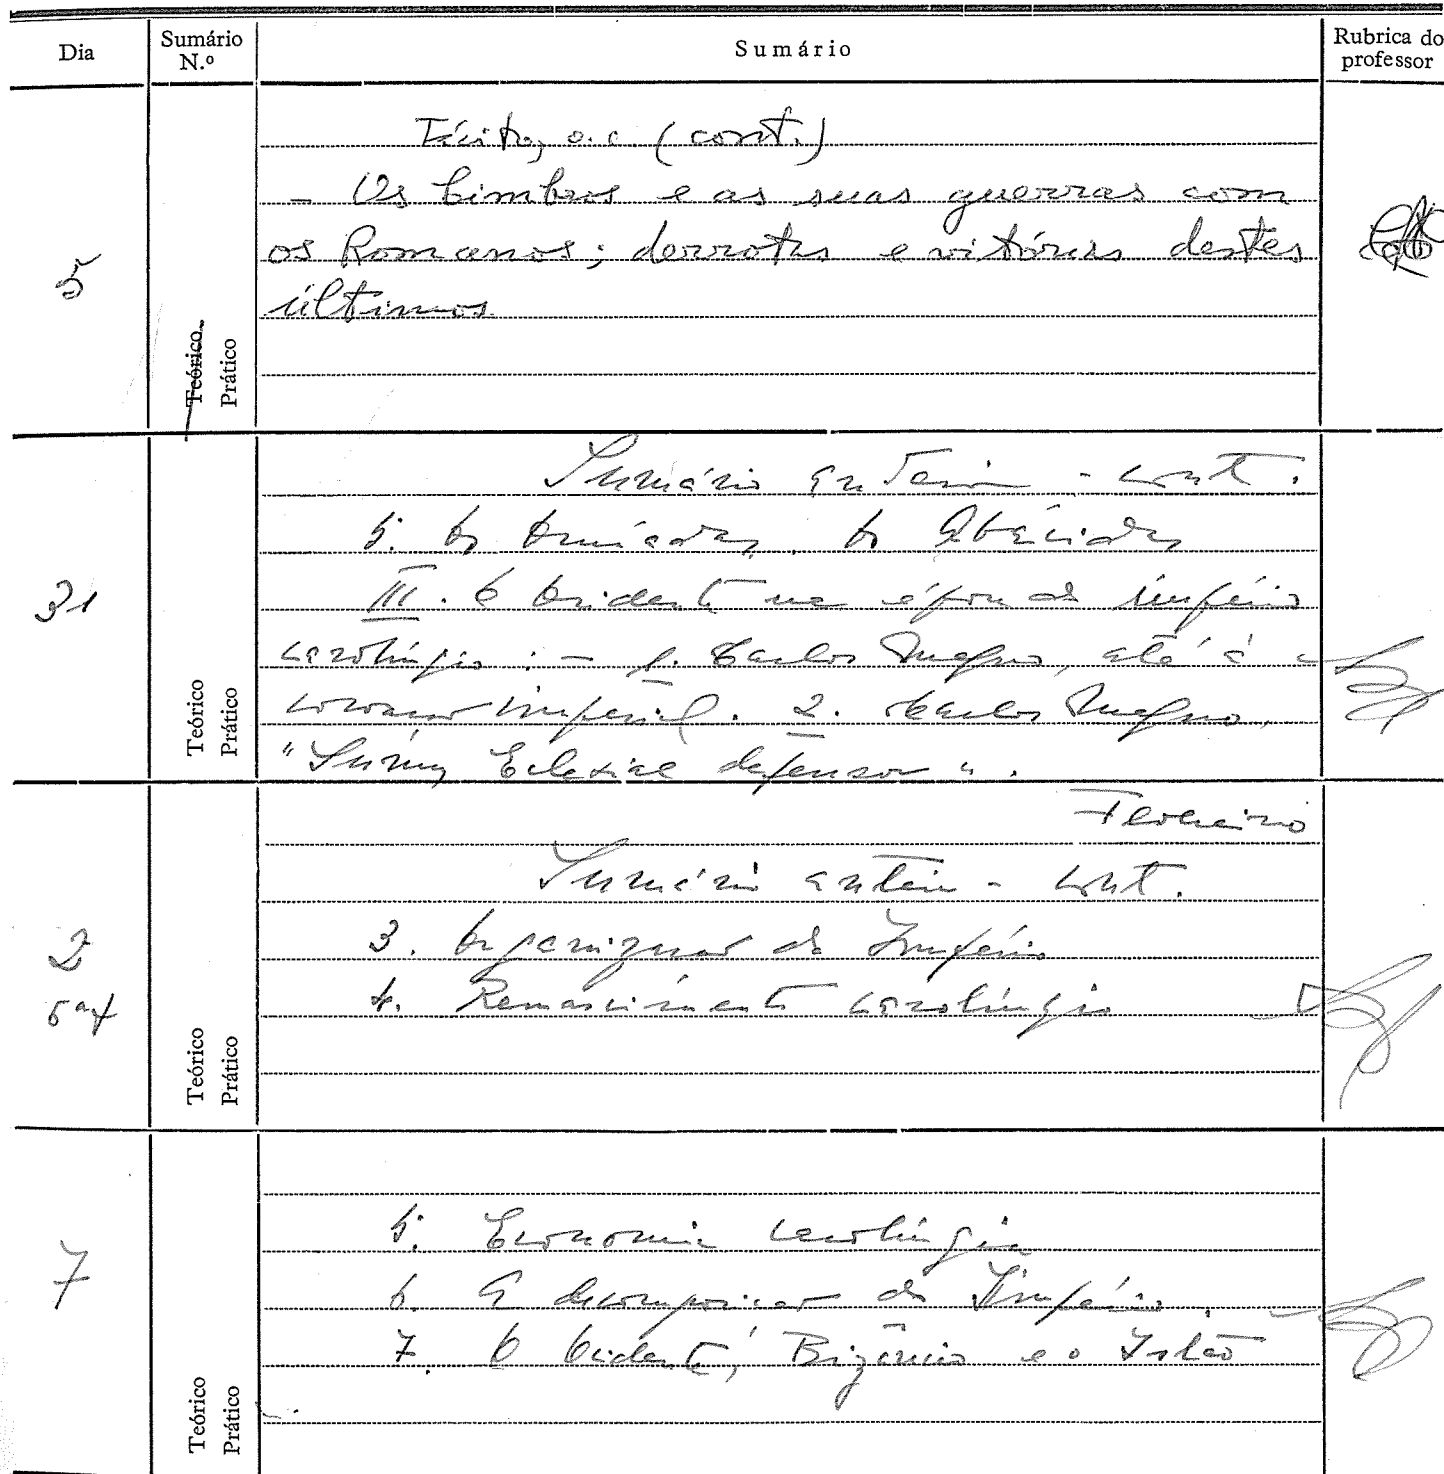 Dia
Sumário
N.º
Sumário
Rubrica do
professor
5
Teórico
Prático
Tácito, o.c. (cont.)
- Os Cimbros e as suas guerras com
os Romanos; derrotas e vitórias destes
últimos
31
Teórico
Prático
Sumário anterior - cont.
5. Os Omíadas. Os Abácidas
III. O Ocidente na época do império
carolíngio : - 1. Carlos Magno, até à
coroação imperial. 2. Carlos Magno,
"Ecclesiae defensor".
2
5ª f
Teórico
Prático
Fevereiro
Sumário anterior - cont.
3. Organização do Império
4. Renascimento carolíngio
7
Teórico
Prático
5. Economia carolíngia
6. A decomposição do Império.
7. O Ocidente, Bizâncio e o Islão